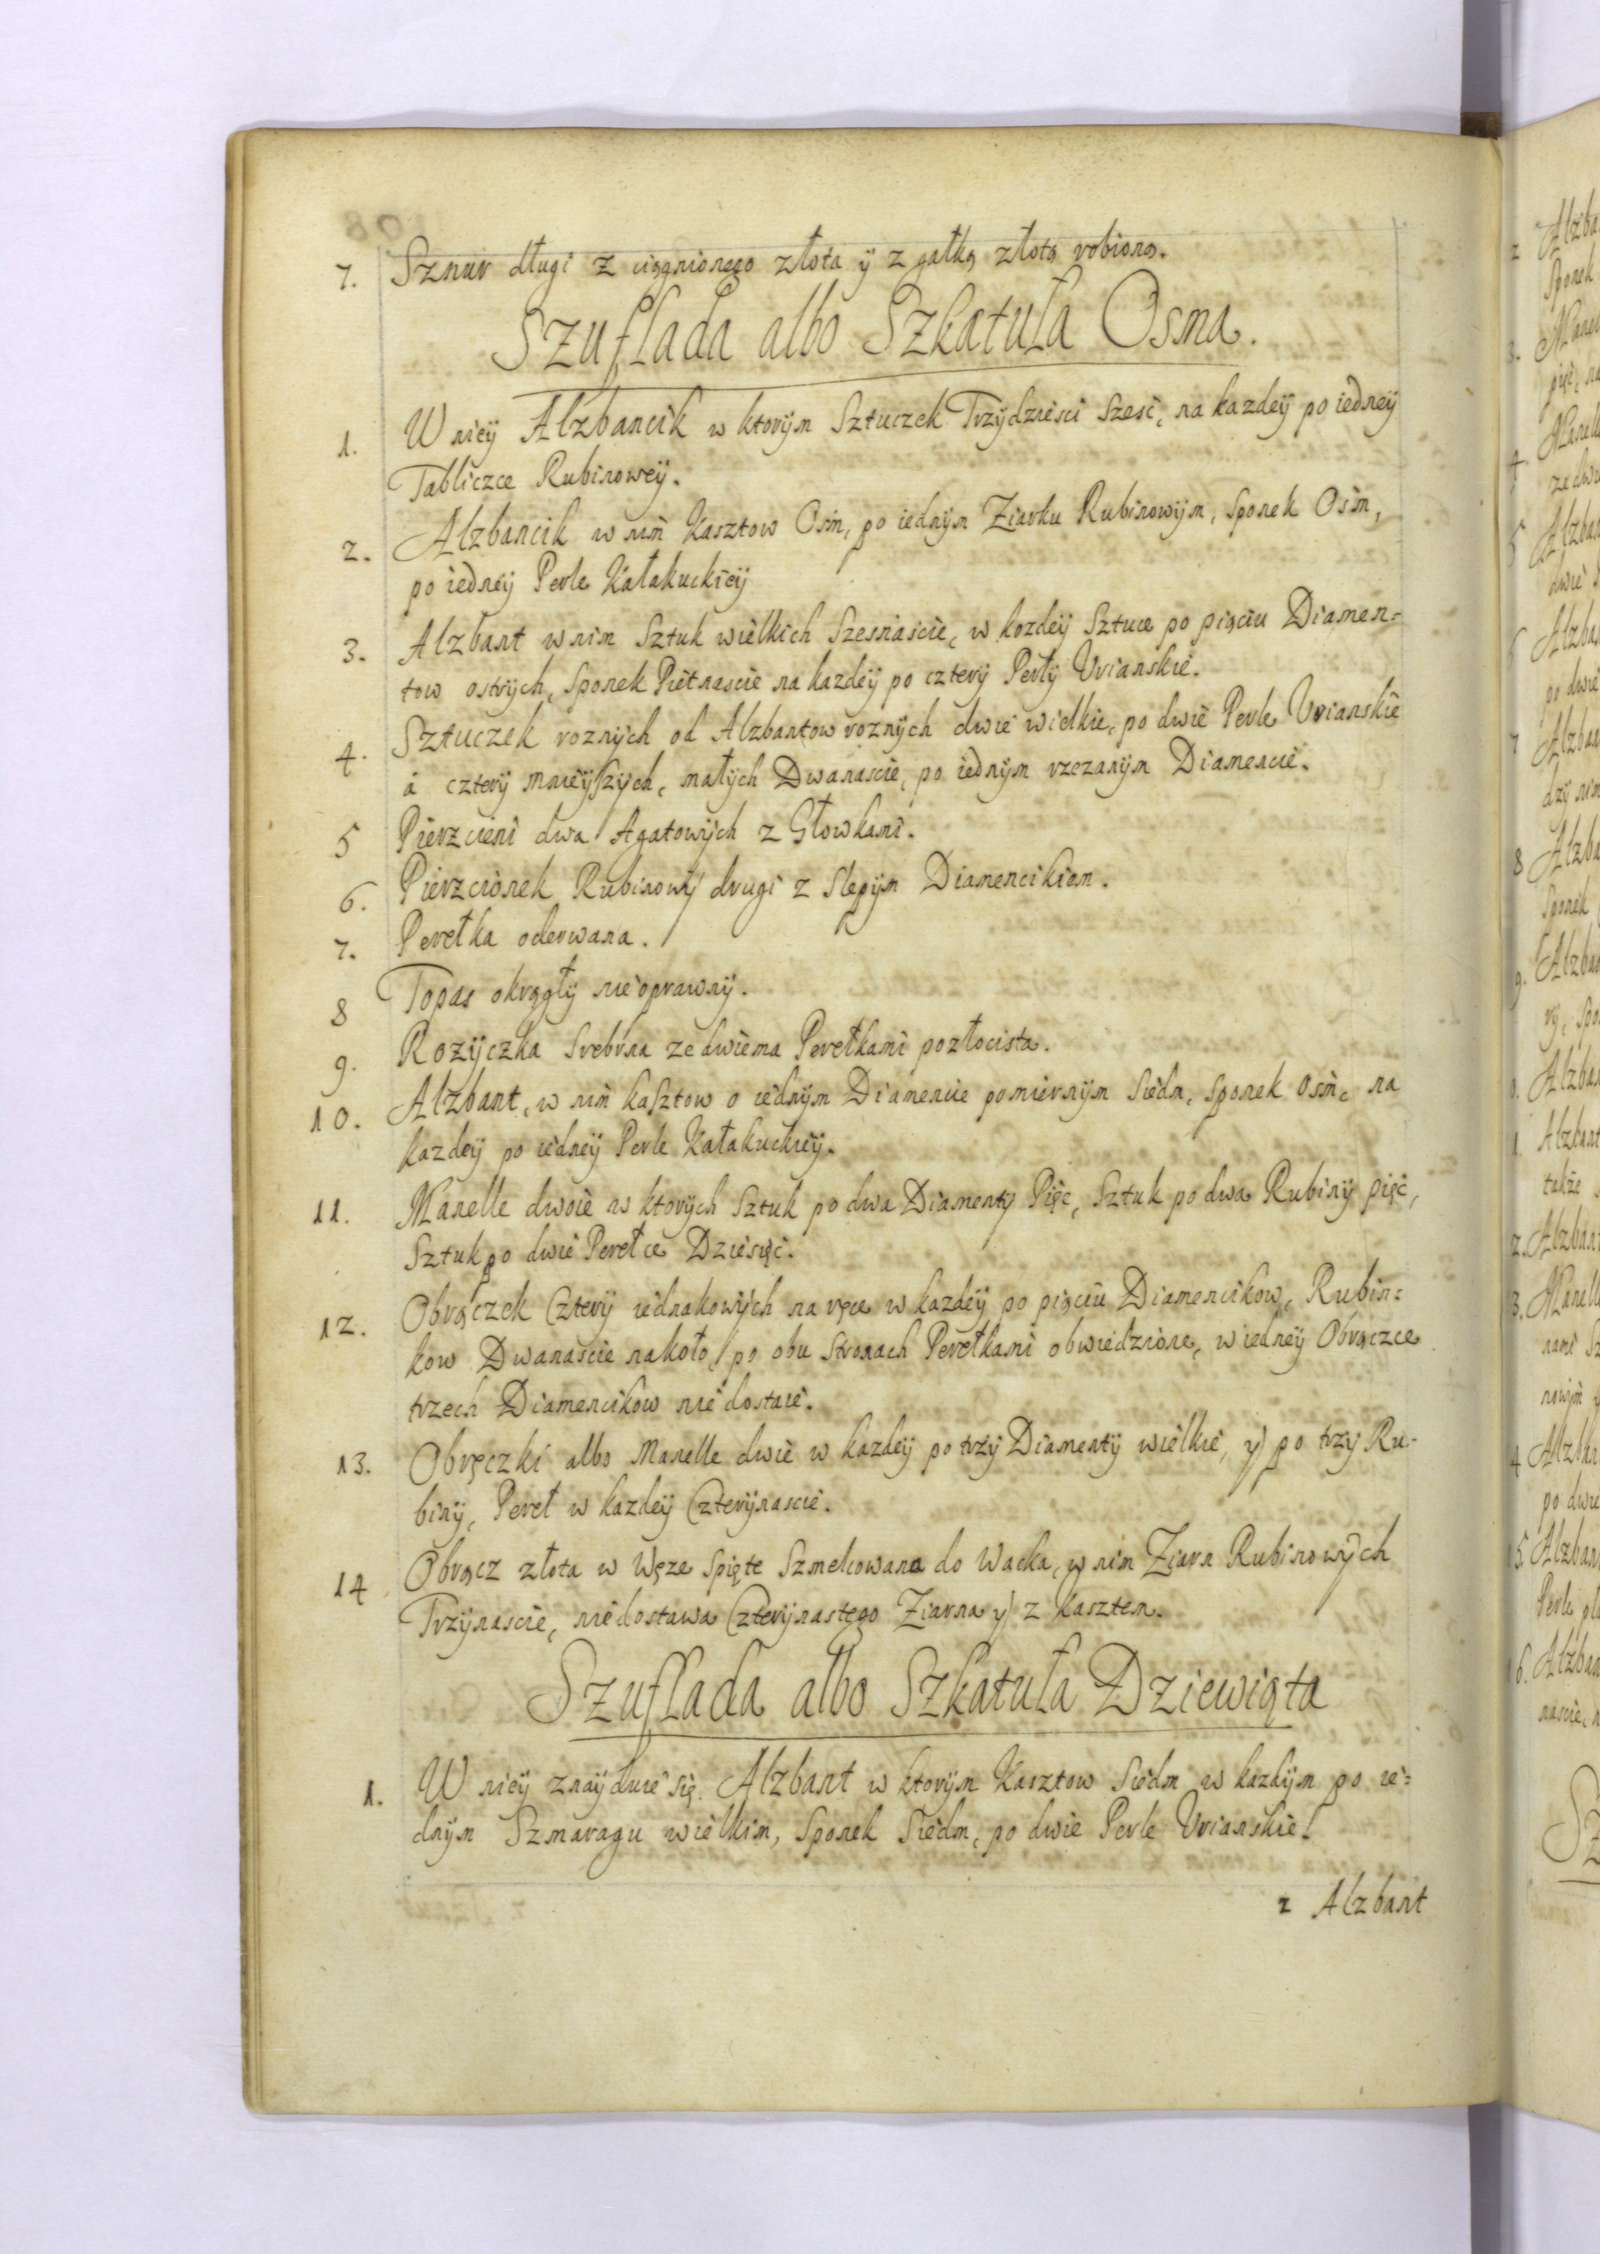 7. Sznur długi z ciągnionego złota ÿ z gałką złotą robioną.
Szuflada albo Szkatuła Osma.
1. W nieÿ Alzbancik w ktorÿm Sztuczek Trzÿdziesci szesć, na kazdeÿ po iedneÿ
Tabliczce Rubinoweÿ.
2. Alzbancik w nim̃ Kasztow Osm̃, po iednÿm Ziarku Rubinowÿm, Sponek Osm̃,
po iedneÿ Perle Kałakuckieÿ
3. Alzbant w nim Sztuk wielkich Szesnascie, w kozdeÿ Sztuce po pięciu Diamen=
tow ostrÿch, Sponek Pietnascie na kazdeÿ po czterÿ Perłÿ Urianskie.
4. Sztuczek roznÿch od Alzbantow roznÿch dwie wielkie, po dwie Perle Urianskie
á czterÿ mnieÿszÿch, małÿch Dwanascie, po iednÿm rzezanÿm Diamencie.
5 Pierzcieni dwa Agatowÿch z Głowkami.
6. Pierzcionek Rubinowÿ drugi z slepÿm Diamencikiem.
7. Perełka oderwana.
8 Topas okrągłÿ nie oprawnÿ.
9. Rozÿczka Srebrna ze dwiema Perełkami pozłocista.
10. Alzbant, w nim̃ kasztow o iednÿm Diamencie pomiernÿm Siedm, sponek osm̃, na
kazdeÿ po iedneÿ Perle Kałakuckieÿ.
11. Manelle dwoie w ktorÿch Sztuk po dwa Diamentÿ Pięc, Sztuk po dwa Rubinÿ pięć,
Sztuk po dwie Perełce Dziesięć.
12. Obrączek Czterÿ iednakowÿch na ręce w kazdeÿ po pięciu Diamencikow, Rubin=
kow Dwanascie nakoło, po obu stronach Perełkami obwiedzione, w iedneÿ Obrączce
trzech Diamencikow nie dostaie.
13. Obręczki albo Manelle dwie w kazdeÿ po trzÿ Diamentÿ wielkie, ÿ po trzÿ Ru-
binÿ, Pereł w kazdeÿ Czterÿnascie.
14 Obręcz złota w Węze spięte Szmelcowana do Wacka, w nim Ziarn Rubinowÿch
Trzÿnascie, niedostawa Czterÿnastego Ziarna ÿ z kasztem.
Szuflada albo Szkatuła Dziewiąta
1. W nieÿ znaÿduie się. Alzbant w ktorÿm Kasztow Siedm w kazdÿm po ie=
dnÿm Szmaragu wielkim, Sponek Siedm, po dwie Perle Urianskie.
2 Alzbant